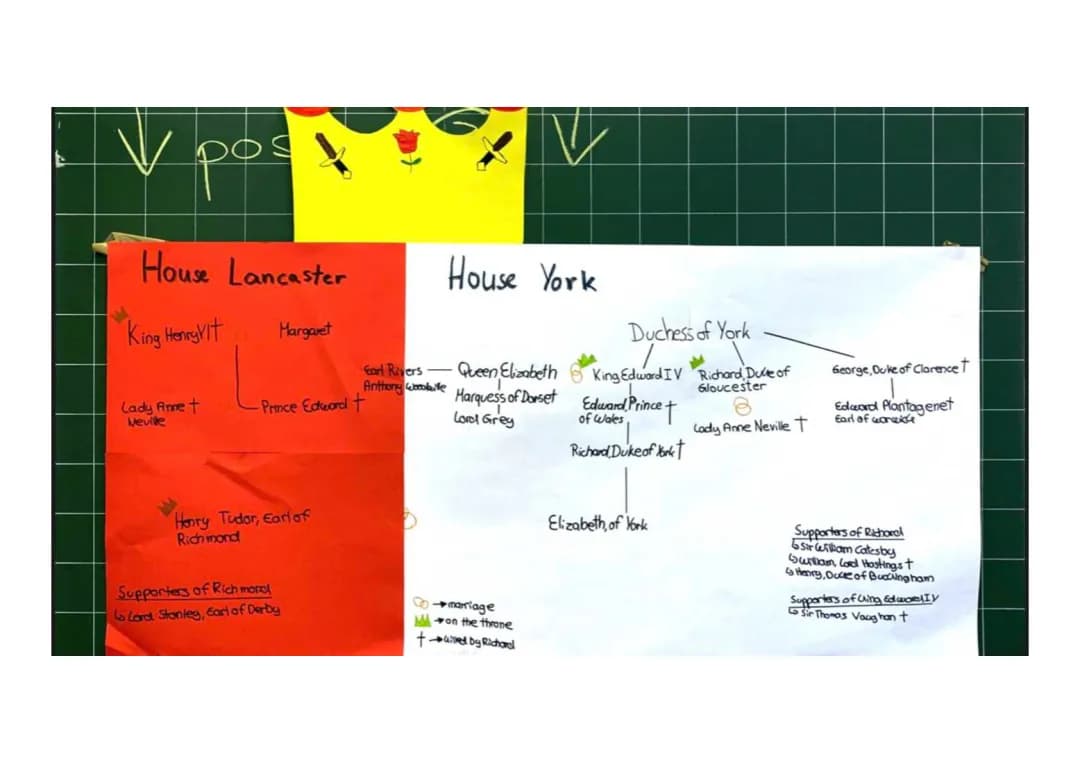 pos
House Lancaster
House York
King Henry VI †
Margaret
Duchess of York
Earl Rivers
Anthony Woodville
Queen Elizabeth
Marquess of Dorset
Lord Grey
King Edward IV
Richard, Duke of
Gloucester
George, Duke of Clarence †
Lady Anne †
Neville
Prince Edward †
Edward, Prince †
of Wales
Lady Anne Neville †
Edward Plantagenet
Earl of Warwick
Richard, Duke of York †
Henry Tudor, Earl of
Richmond
Elizabeth, of York
Supporters of Richmond
↳ Lord Stanley, Earl of Derby
→ marriage
→ on the throne
† → killed by Richard
Supporters of Richard
↳ Sir William Catesby
↳ William, Lord Hastings †
↳ Henry, Duke of Buckingham
Supporters of King Edward IV
↳ Sir Thomas Vaughan †